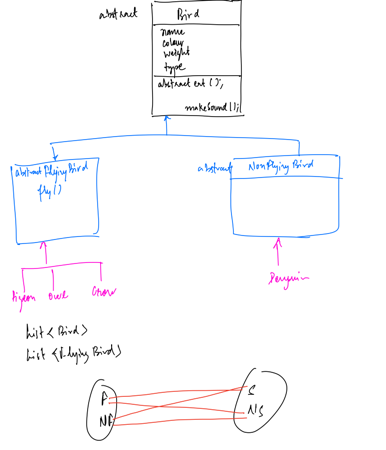 abstract Bird
name
colour
weight
type
abstract eat ( );
makeSound ( );
abstract Flying Bird
fly ( )
abstract NonFlying Bird
Pigeon Crow
Penguin
List < Bird >
List < Flying Bird >
F S
NF NS